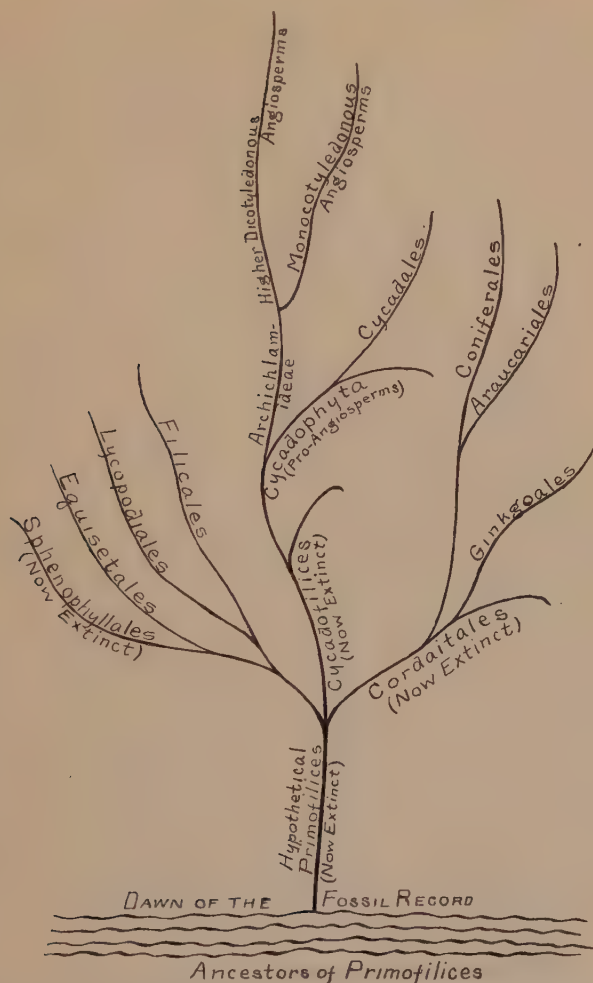 Higher Dicotyledonous
Angiosperms
Monocotyledonous
Angiosperms
Archichlam-
ideae
Cycadales.
Cycadophyta
(Pro-Angiosperms)
Coniferales
Araucariales
Ginkgoales
Filicales
Lycopodiales
Equisetales
Sphenophyllales
(Now Extinct)
Cycadofilices
(Now Extinct)
Cordaitales
(Now Extinct)
Hypothetical
Primofilices
(Now Extinct)
DAWN OF THE FOSSIL RECORD
Ancestors of Primofilices